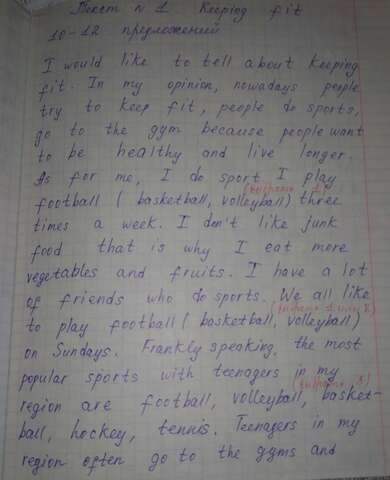 Текст №1 Keeping fit
10-12 предложений
I would like to tell about keeping
fit. In my opinion, nowadays people
try to keep fit, people do sports,
go to the gym because people want
to be healthy and live longer.
As for me, I do sport I play
(выбрать 1)
football (basketball, volleyball) three
times a week. I don't like junk
food that is why I eat more
vegetables and fruits. I have a lot
of friends who do sports. We all like
(выбрать 1
to play football (basketball, volleyball)
on Sundays. Frankly speaking, the most
popular sports with teenagers in my
region are football, volleyball, basket-
ball, hockey, tennis. Teenagers in my
region often go to the gyms and